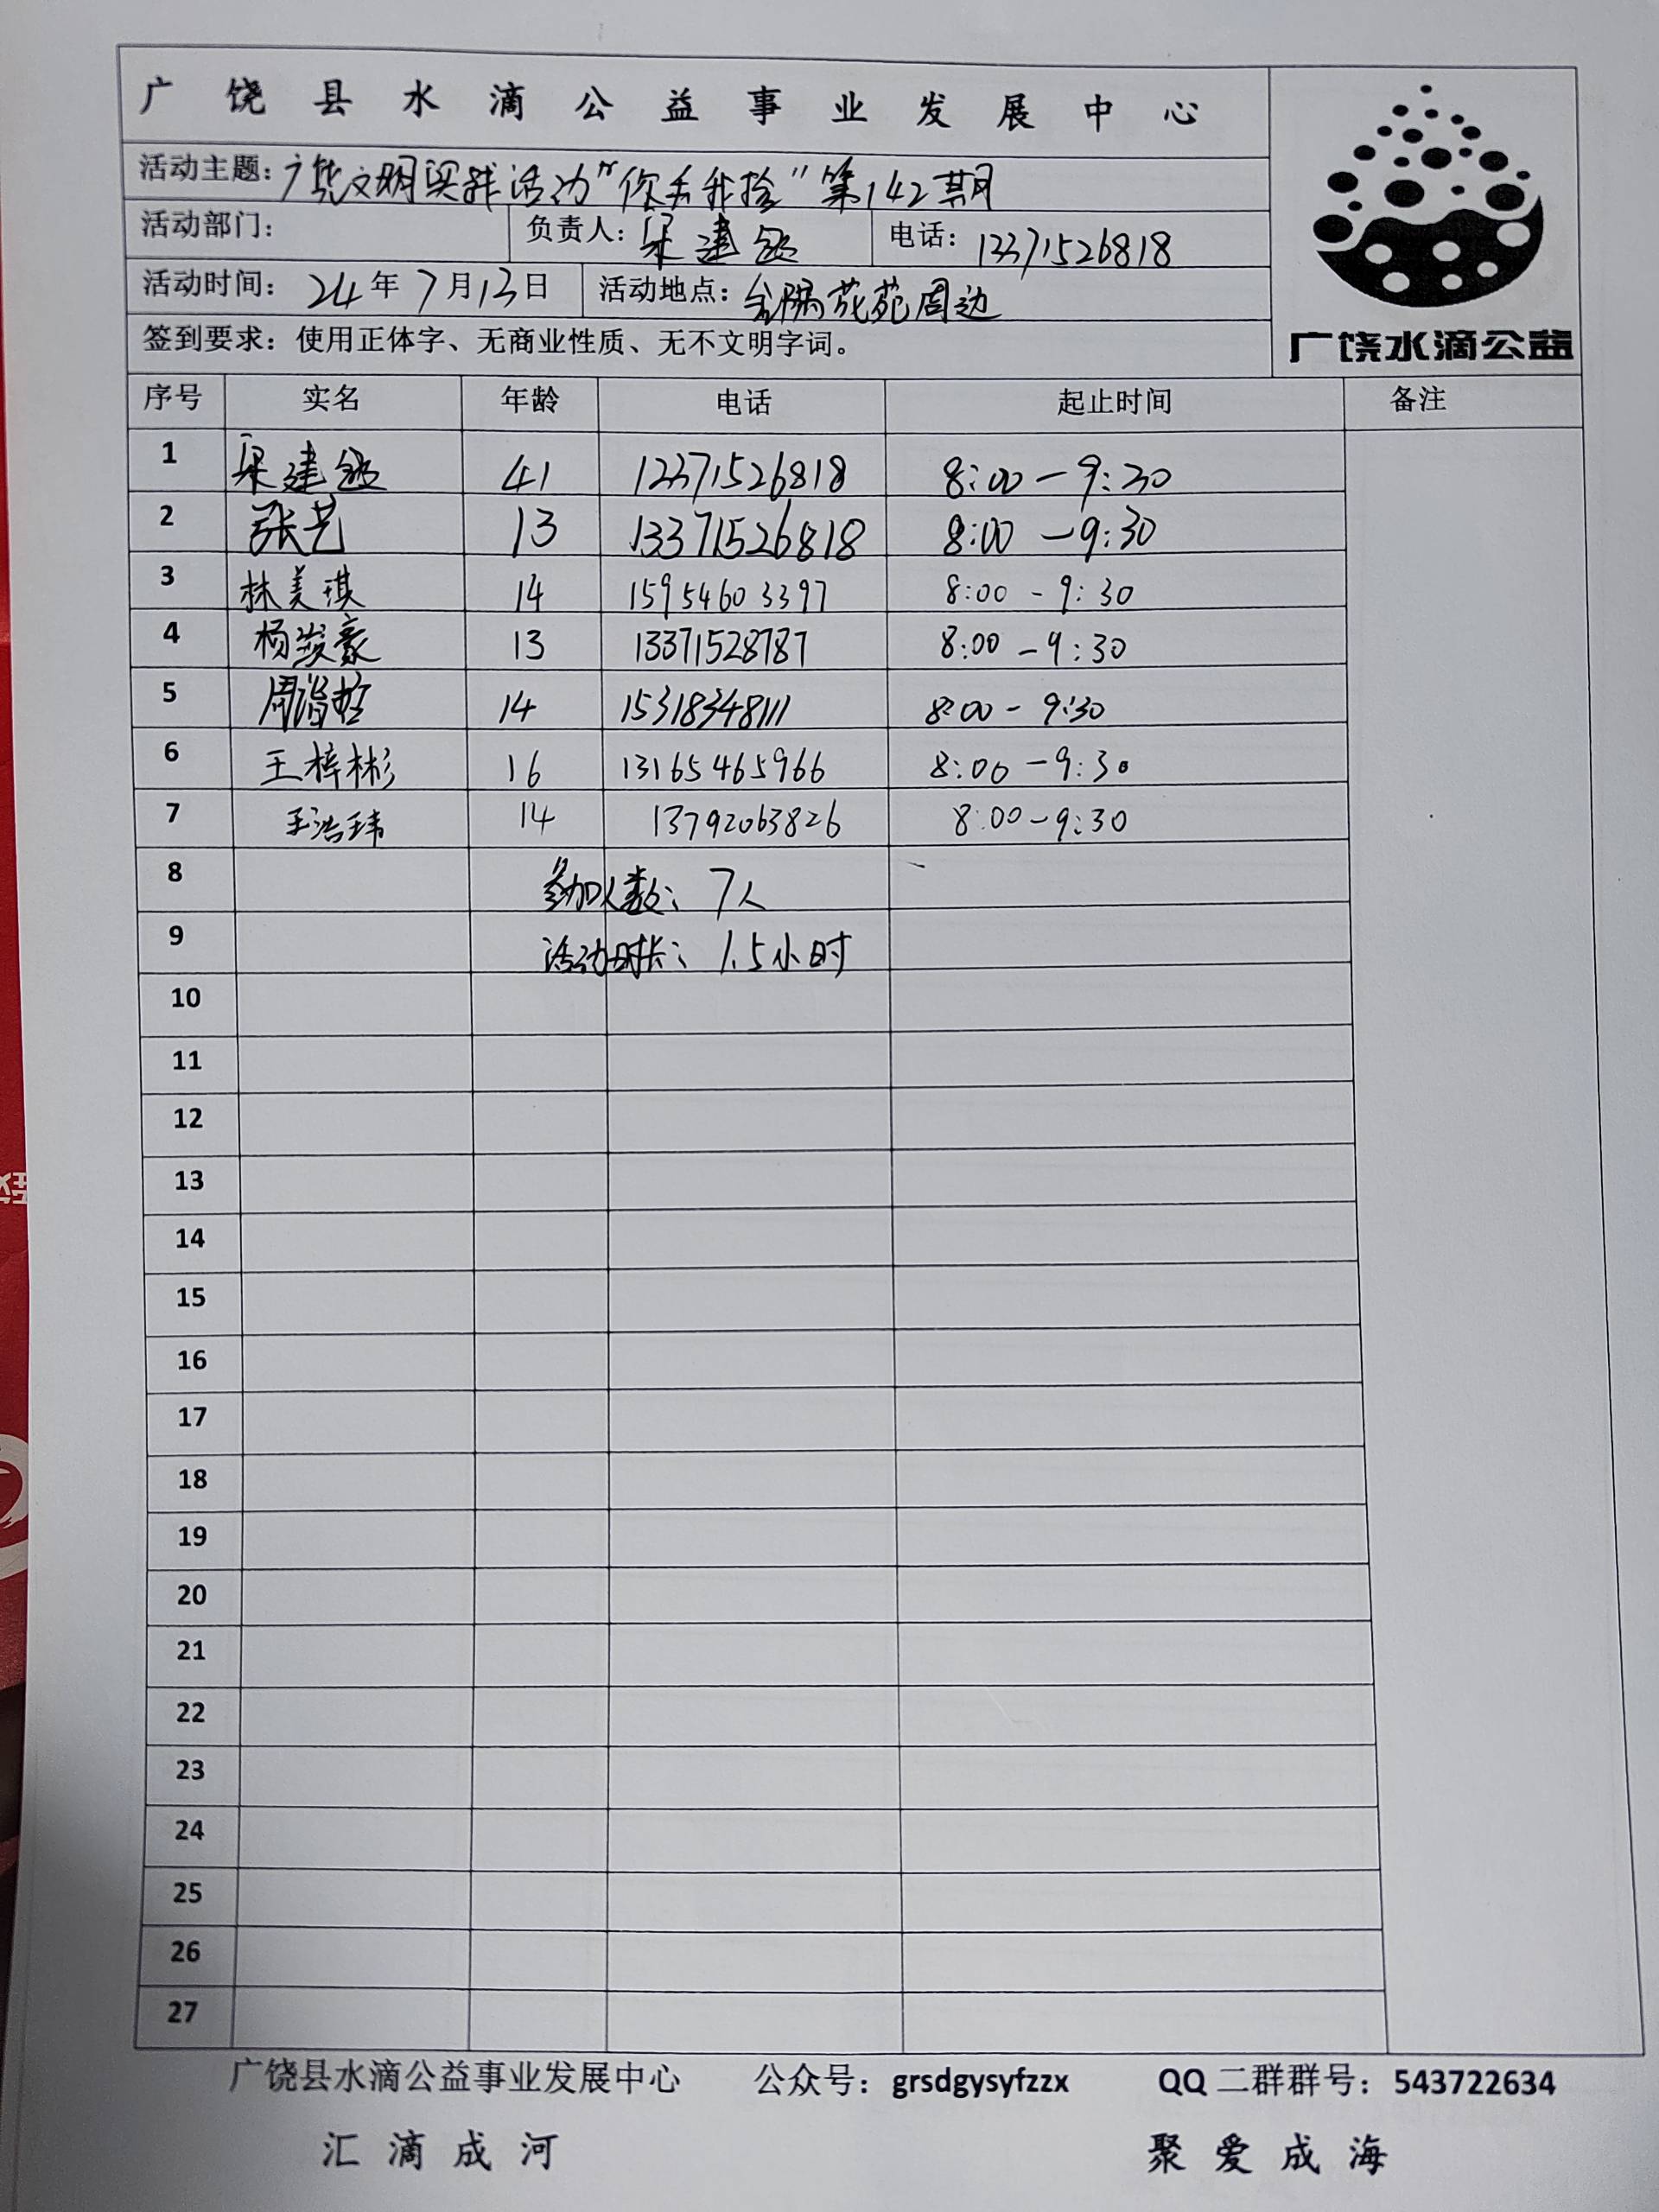 广饶县水滴公益事业发展中心
活动主题：广饶文明实践活动“你丢我捡”第142期
活动部门： 负责人：梁建 电话：13371526818
活动时间：24年7月13日 活动地点：阳花苑周边
签到要求：使用正体字、无商业性质、无不文明字词。
广饶水滴公益
序号 实名 年龄 电话 起止时间 备注
1 梁建 41 13371526818 8:00-9:30
2 张艺 13 13371526818 8:00-9:30
3 林美琪 14 15954603397 8:00-9:30
4 杨俊豪 13 13371528787 8:00-9:30
5 周 14 15318348111 8:00-9:30
6 王梓彬 16 13165465966 8:00-9:30
7 王浩玮 14 13792063826 8:00-9:30
8 参加人数：7人
9 活动时长：1.5小时
10
11
12
13
14
15
16
17
18
19
20
21
22
23
24
25
26
27
广饶县水滴公益事业发展中心 公众号：grsdgysyfzzx QQ二群群号：543722634
汇滴成河 聚爱成海